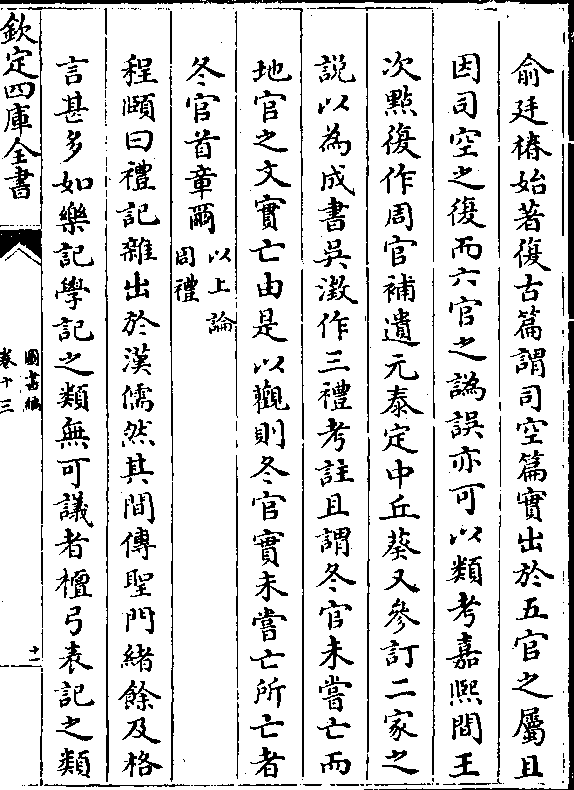 俞廷椿始著復古篇謂司空篇實出於五官之屬且
因司空之復而六官之譌誤亦可以類考嘉熙間王
次㸃復作周官補遺元泰定中丘葵又參訂二家之
説以為成書吳澂作三禮考註且謂冬官未嘗亡而
地官之文實亡由是以觀則冬官實未嘗亡所亡者
冬官首章爾
以上論
周禮
程頤曰禮記雜出於漢儒然其間傳聖門緒餘及格
言甚多如樂記學記之類無可議者檀弓表記之類
欽定四庫全書
圖書編
卷十三
十一